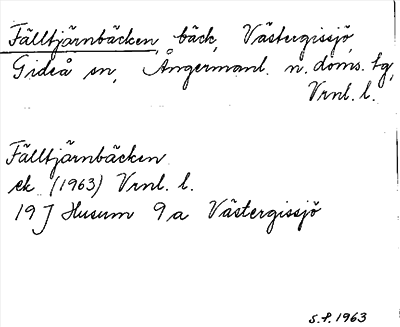 Fälltjärnbäcken, bäck, Västergissjö,
Gideå sn, Ångermanl. n. doms. tg,
Vrnl. l.
Fälltjärnbäcken
ek (1963) Vrnl. l.
19 J Husum 9a Västergissjö
S.F. 1963